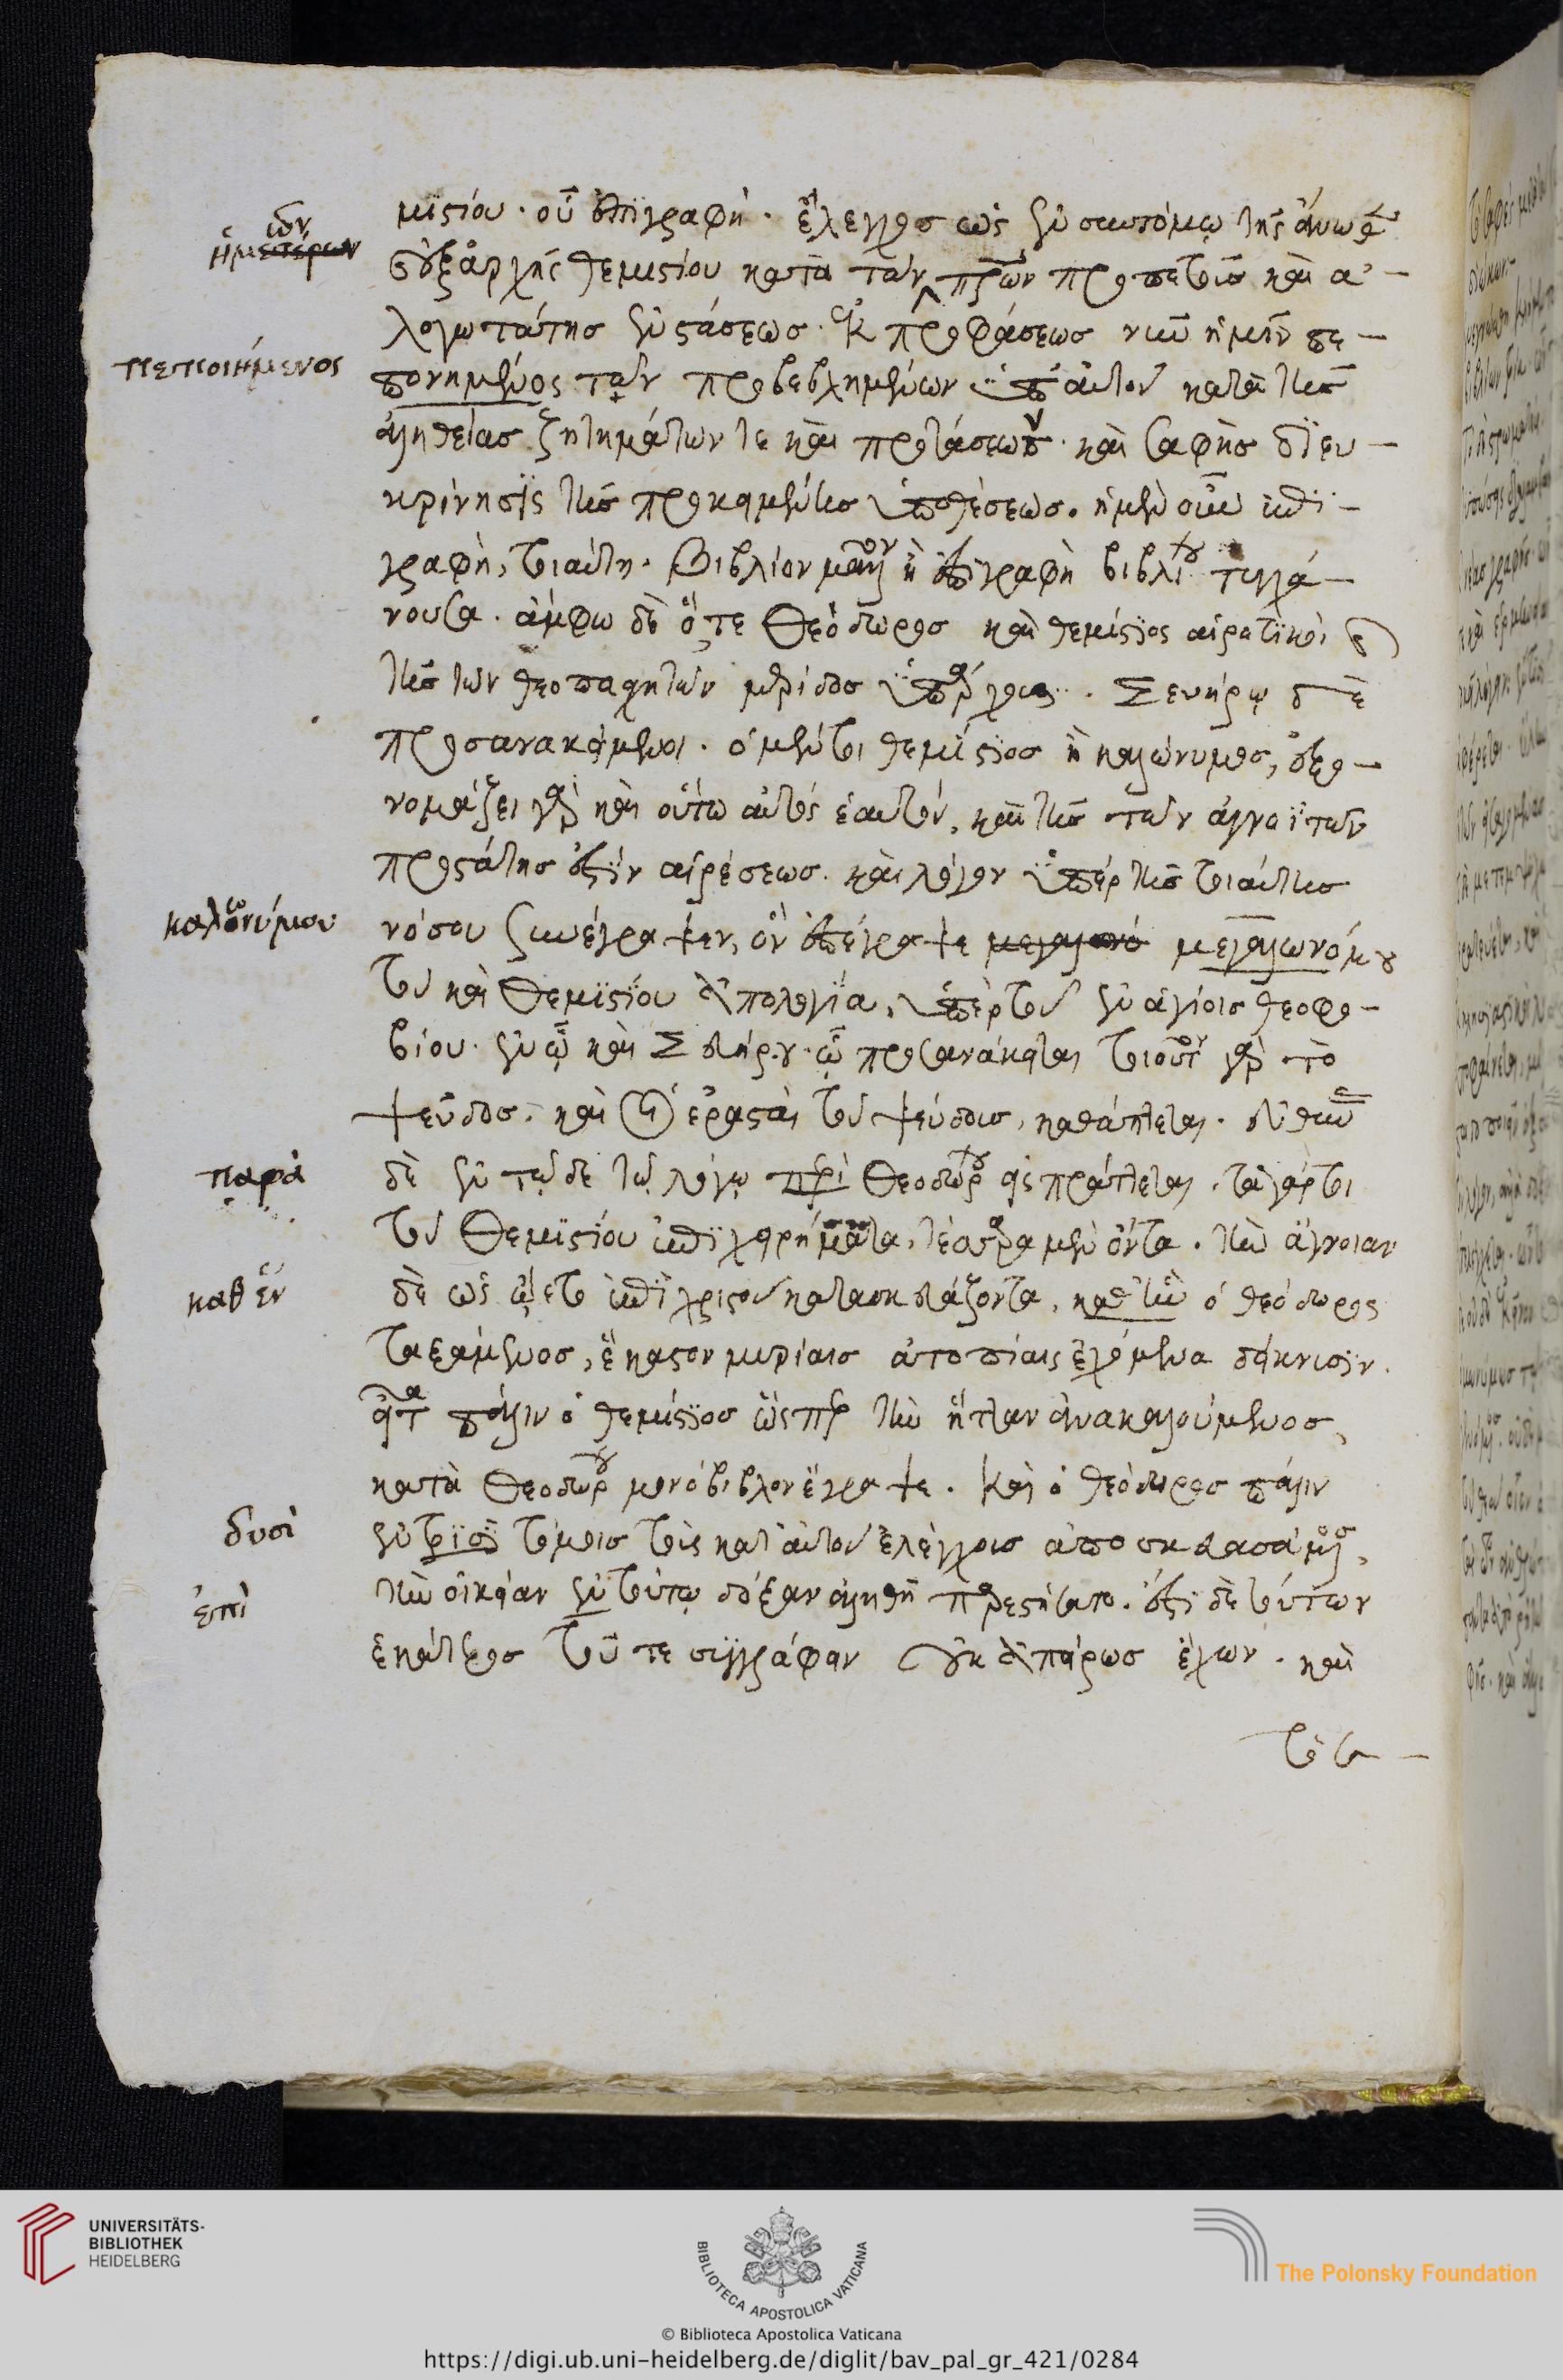 μϊστίου · οὗ ἐπϊγραφή · ἔλεγχος ὡς ἐν συντόμῳ τῆς ἄνωθεν
ἡμετέρων
ῶν
ἐξἀρχῆς θεμιστίου κατὰ τῶν πρῶν προπετείας καὶ ἀ-
λογωτάτης ἐνστάσεως · ἐκ προφάσεως νῦν ἡμῖν πε-
πεποιημένος
πονημένος τῶν προβεβλημένων ὑπ' αὐτοῦ κατὰ τῆς
ἀληθείας ζητημάτων τε καὶ προτάσεων · καὶ σαφὴς διευ-
κρίνησϊς τῆς προκειμένης ὑποθέσεως. ἡ μὲν οὖν ἐπι-
γραφὴ, τοιαύτη. βιβλίον μᾶλλον ἢ ἐπιγραφὴ βιβλίου τυγχά-
νουσα. ἄμφω δὲ ὅ,τε Θεόδωρος καὶ θεμίστϊος αἱρετϊκοὶ
τῆς τῶν θεοπασχητῶν μερίδος ὑπάρχουσι. Σευήρῳ δὲ
προσανακείμενοι. ὁ μέντοι θεμίστϊος ἢ καλώνυμος, ἐξο-
νομάζει γὰρ καὶ οὕτω αὐτὸς ἑαυτόν, καὶ τῆς τῶν ἀγνοϊτῶν
προστάτης ἐστὶν αἱρέσεως. καὶ λόγον ὑπὲρ τῆς τοιαύτης
καλωνύμου
νόσου συνέγραψεν, ὃν ἐπέγραψε μεγαλωνό μεγαλωνόμου
τοῦ καὶ Θεμϊστΐου ἀπολογΐα, ὑπὲρ τοῦ ἐν ἁγίοις θεοφο-
βίου. ἐν ᾧ καὶ Σευήρου ᾧ προσανάκειται τοιοῦτον γὰρ τὸ
ψεῦδος. καὶ ἐρασταὶ τοῦ ψεύδους, καθάπτεται.
παρὰ
δὲ ἐν τῷδε τῷ λόγῳ περὶ Θεοδώρου εἰσπράττεται. τὰ γάρ τοι
τοῦ Θεμϊστίου ἐπϊχειρήματα, τέσσαρα μὲν ὄντα. τὴν ἄγνοιαν
καθ ἓν
δὲ ὡς ᾤετο ἐπὶ χριστοῦ κατασκευάζοντα, καθ' ἣν ὁ θεόδωρος
ταξάμενος, ἕκαστον μυρίαις ἀτοπίαις ἐχόμενα δείκνυσϊν.
εἶτα πάλιν ὁ θεμίστϊος ὥσπερ τὴν ἧτταν ἀνακαλούμενος,
κατὰ Θεοδώρου μονόβιβλον ἔγραψε. Καὶ ὁ θεόδωρος πάλιν
δυσὶ
ἐν τρϊσὶ τόμοις τοῖς κατ' αὐτοῦ ἐλέγχοις ἀποσκευασάμενος,
ἐπὶ
τὴν οἰκείαν ἐν τούτῳ δόξαν ἀληθῆ παρεστήσατο. ἔστι δὲ τούτων
ἑκάτερος τοῦτε συγγράφειν οὐκ ἀπείρως ἔχων. καὶ
τὸ σα-
UNIVERSITÄTS-
BIBLIOTHEK
HEIDELBERG
BIBLIOTECA APOSTOLICA VATICANA
The Polonsky Foundation
© Biblioteca Apostolica Vaticana
https://digi.ub.uni-heidelberg.de/diglit/bav_pal_gr_421/0284